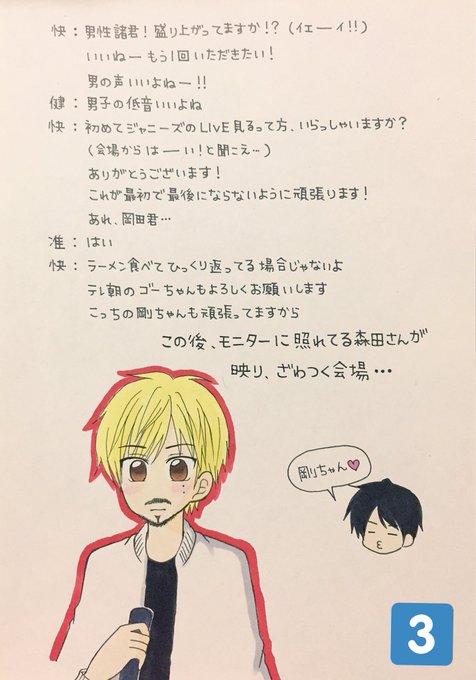 快：男性諸君！盛り上がってますか！？（イェーイ！！）
いいねー もう1回いただきたい！
男の声いいよねー！！
健：男子の低音いいよね
快：初めてジャニーズのLIVE見るって方、いらっしゃいますか？
（会場からはーい！と聞こえ…）
ありがとうございます！
これが最初で最後にならないように頑張ります！
あれ、岡田君…
准：はい
快：ラーメン食べてひっくり返ってる場合じゃないよ
テレ朝のゴーちゃんもよろしくお願いします
こっちの剛ちゃんも頑張ってますから
この後、モニターに照れてる森田さんが
映り、ざわつく会場…
剛ちゃん♥
3